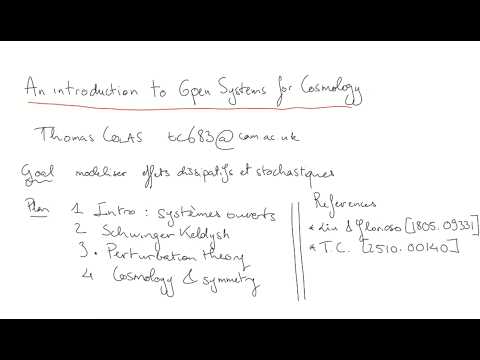 An introduction to Open Systems for Cosmology
Thomas COLAS tc683@cam.ac.uk
Goal modéliser effets dissipatifs et stochastiques
Plan 1 Intro : systèmes ouverts
2 Schwinger Keldysh
3. Perturbation theory
4 Cosmology & symmetry
References
* Liu & Glorioso [1805.09331]
* T.C. [2510.00140]